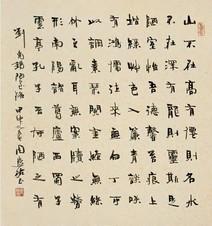 山不在高有仙則名水
不在深有龍則靈斯是
陋室惟吾德馨苔痕上
階綠草色入簾青談笑
有鴻儒往來無白丁可
以調素琴閱金經無絲
竹之亂耳無案牘之勞
形南陽諸葛廬西蜀子
雲亭孔子云何陋之有
劉禹錫陋室銘 甲申